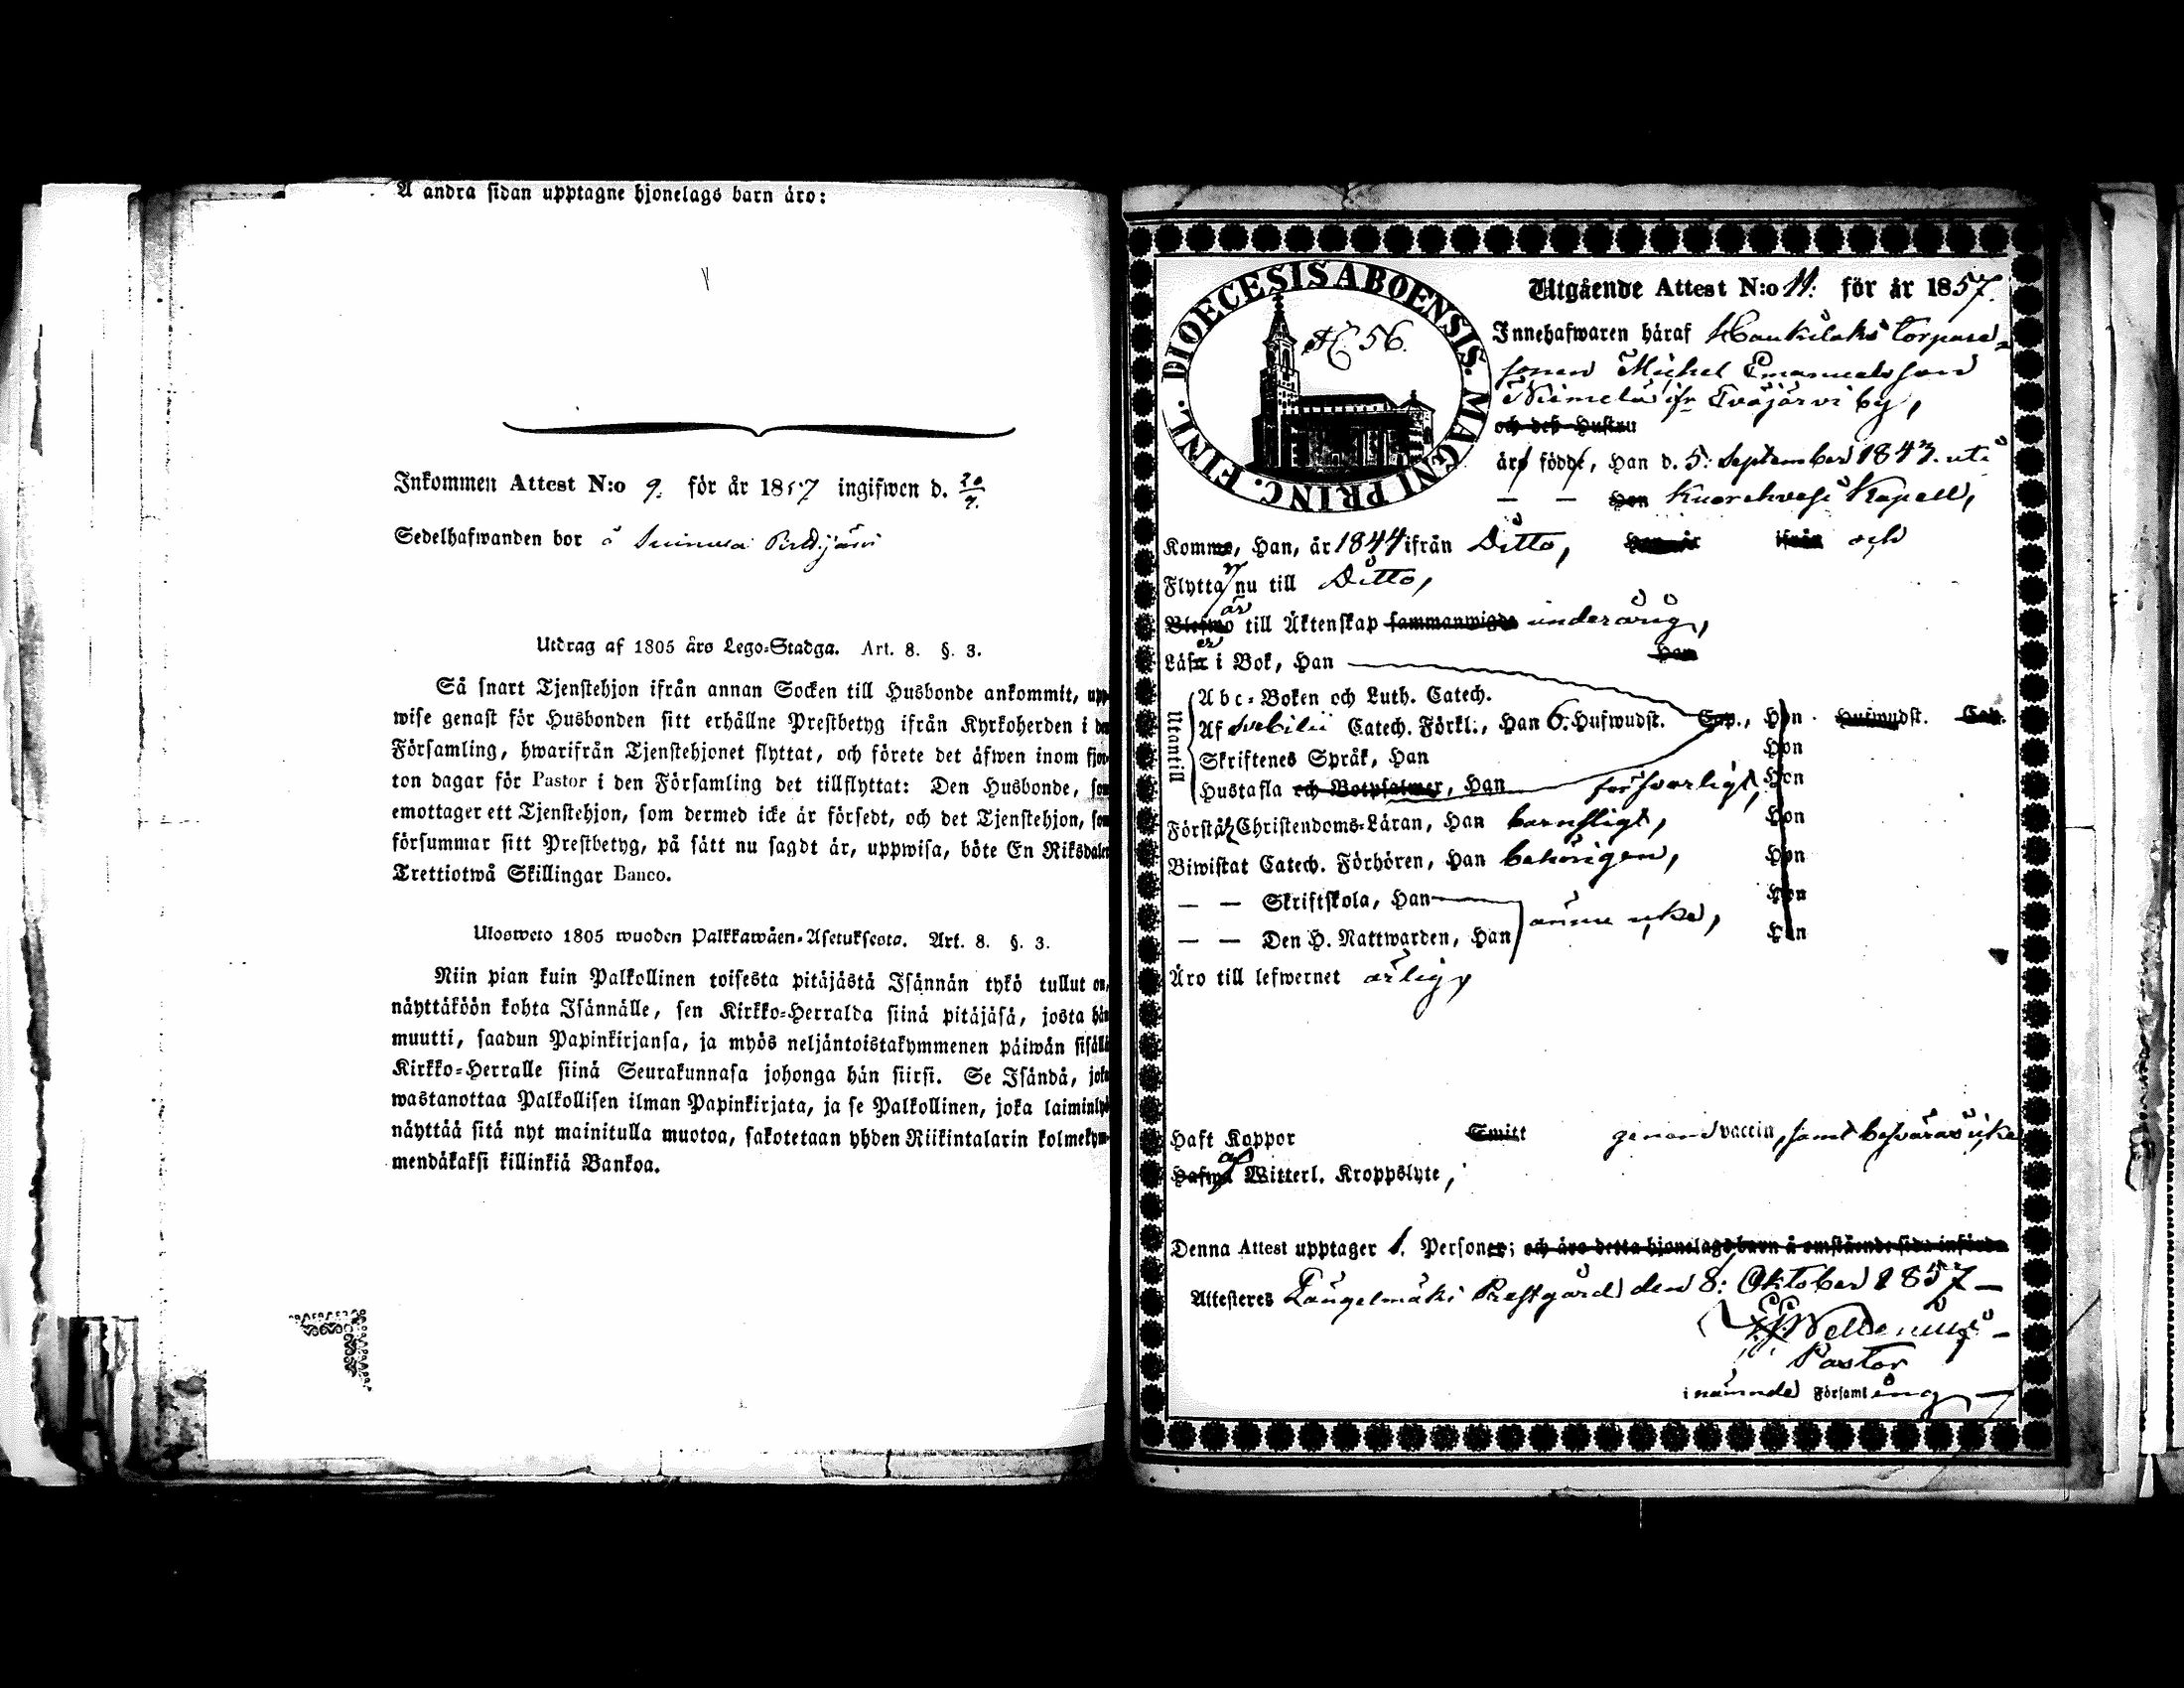 Å andra sidan upptagne hjonelags barn äro:
Inkommen Attest N:o 9. för år 1857 ingifwen d. 20/9.
Sedelhafwanden bor å
Utdrag af 1805 års Lego-Stadga. Art. 8. §. 3.
Så snart Tjenstehjon ifrån annan Socken till Husbonde ankommit, upp-
wise genast för Husbonden sitt erhållne Prestbetyg ifrån Kyrkoherden i den
Församling, hwarifrån Tjenstehjonet flyttat, och förete det äfwen inom fjor-
ton dagar för Pastor i den Församling det tillflyttat: Den Husbonde, som
emottager ett Tjenstehjon, som dermed icke är försedt, och det Tjenstehjon, som
försummar sitt Prestbetyg, på sätt nu sagdt är, uppwisa, böte En Riksdaler
Trettiotwå Skillingar Banco.
Ulosweto 1805 wuoden Palkkawäen-Asetuksesta. Art. 8. §. 3.
Niin pian kuin Palkollinen toisesta pitäjästä Isännän tykö tullut on,
näyttäköön kohta Isännälle, sen Kirkko-Herralda siinä pitäjäsä, josta hän
muutti, saadun Papinkirjansa, ja myös neljäntoistakymmenen päiwän sisällä
Kirkko-Herralle siinä Seurakunnasa johonga hän siirsi. Se Isändä, joka
wastanottaa Palkollisen ilman Papinkirjata, ja se Palkollinen, joka laiminlyö
näyttää sitä nyt mainitulla muotoa, sakotetaan yhden Riikintalarin kolmekym-
mendäkaksi killinkiä Bankoa.
DIOECESIS ABOENSIS. MAGNI PRINC. FINL.
56.
Utgående Attest N:o 11. för år 1857.
Innehafwaren häraf Haukilaks torpare-
sonen Michel Emanuelsson
Niemelä ifr Eväjärvi by,
och deß Hustru
äro födde, Han d. 5. September 1843. uti
— — Hon Kuorehvesi Kapell,
Komme, Han, år 1844 ifrån Ditto, Hon år ifrån och
Flytta r nu till Ditto,
är
Blefwo till Äktenskap sammanwigde underårig,
Läsa er i Bok, Han Hon
Utantill
Abc-Boken och Luth. Catech.
Af Svebilii Catech. Förkl., Han 6. Hufwudst. Cap., Hon Hufwudst. Cap.
Skriftenes Språk, Han Hon
Hustafla och Botpsalmer, Han försvarligt, Hon
Förstå Christendoms-Läran, Han barnsligt, Hon
Biwistat Catech. Förhören, Han behörigen, Hon
— — Skriftskola, Han Hon
— — Den H. Nattwarden, Han ännu icke, Hon
Äro till lefwernet ärlig,
Haft Koppor Smitt genom vaccin, samt besväras icke
Hafwa af Witterl. Kroppslyte,
Denna Attest upptager 1. Personer; och äro detta hjonelags barn å omstående sida införda
Attesteres Längelmäki Prestgård den 8. Oktober 1857 —
Pastor
i nämnde Församling —